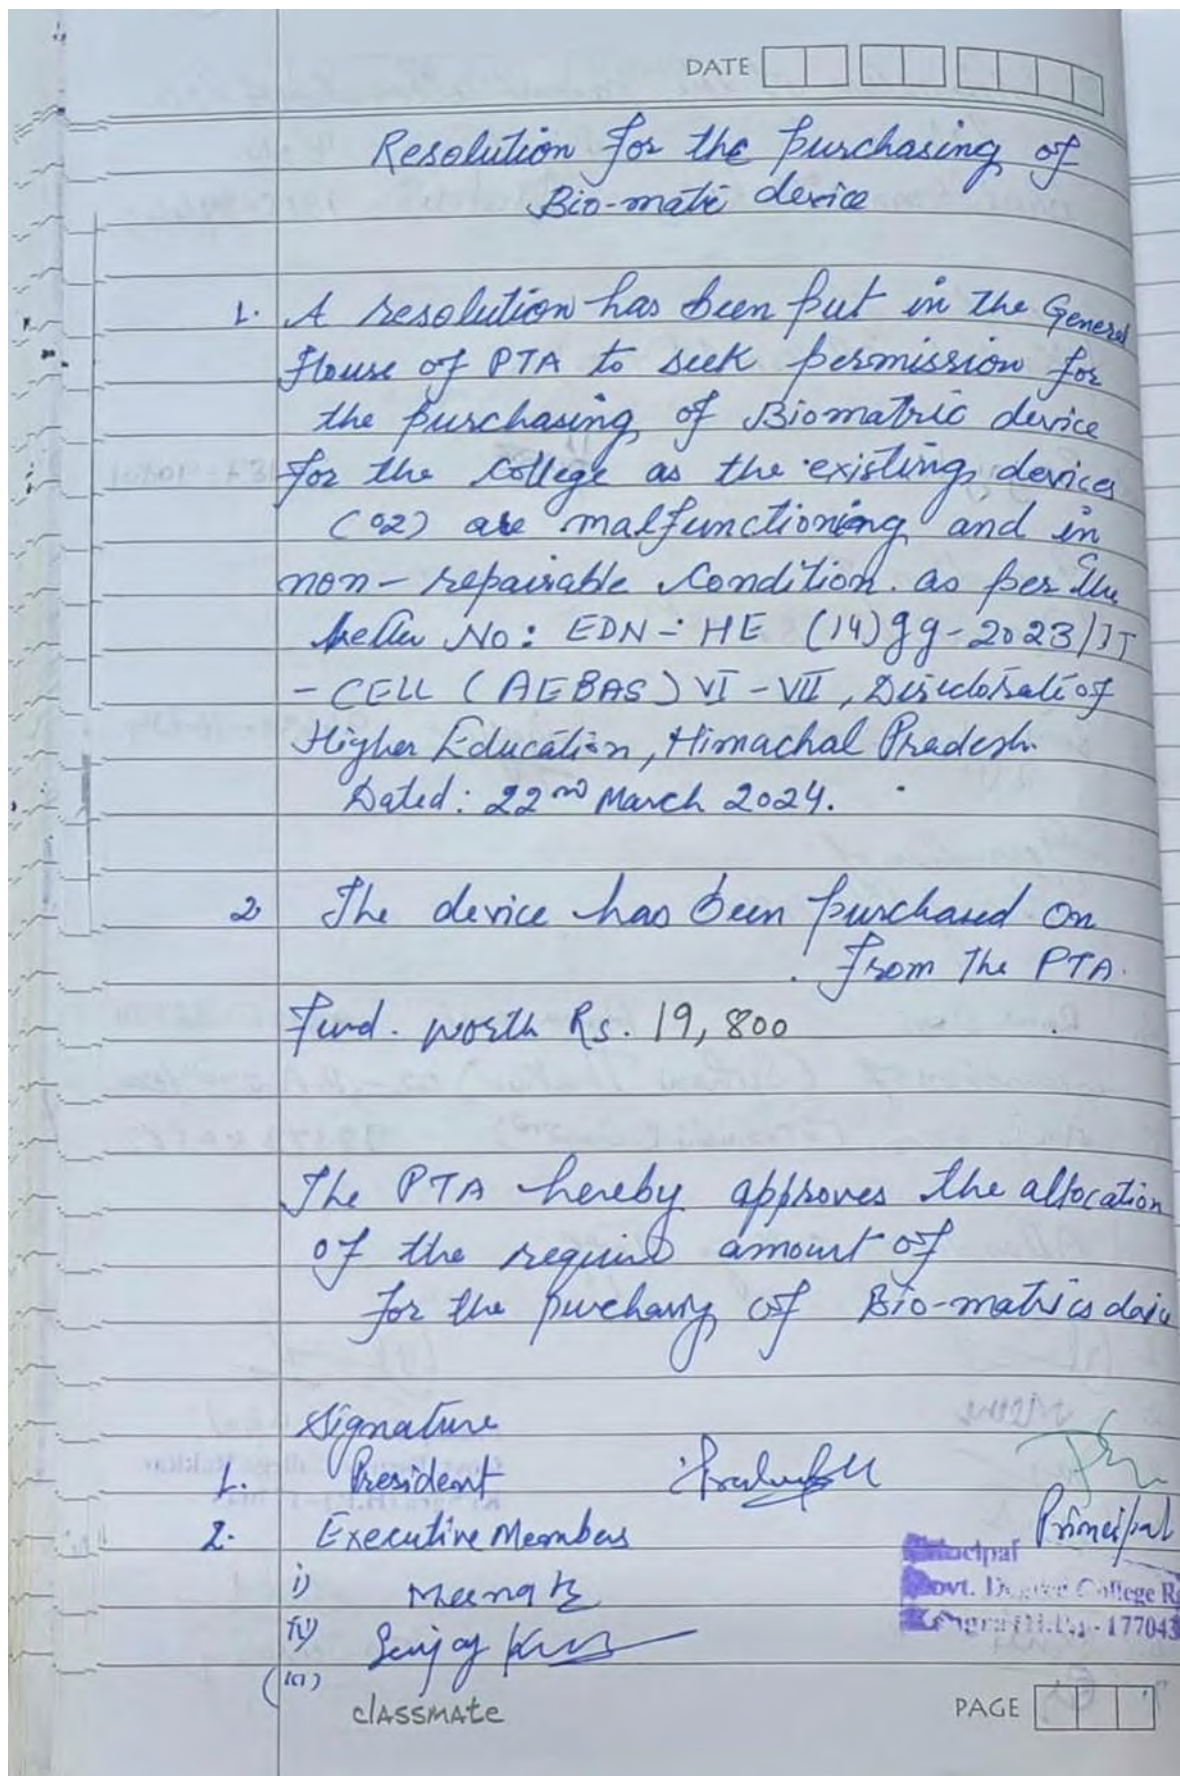 DATE
Resolution for the purchasing of
Bio-matric device
1. A resolution has been put in the General
House of PTA to seek permission for
the purchasing of Biomatric device
for the College as the existing devices
(02) are malfunctioning and in
non-repairable condition. as per the
letter No: EDN-HE (14)gg-2023/IT
-CELL (AEBAS) VI-VII, Directorate of
Higher Education, Himachal Pradesh.
Dated: 22nd March 2024.
2 The device has been purchased on
from the PTA.
Fund. worth Rs. 19,800
The PTA hereby approves the allocation
of the required amount of
for the purchasing of Bio-matrics device
Signature
1. President
Principal
2. Executive Members
Principal
Govt. Degree College
Kangra (H.P.) - 177043
i) Meena
ii) Sanjay
(iii)
classmate
PAGE